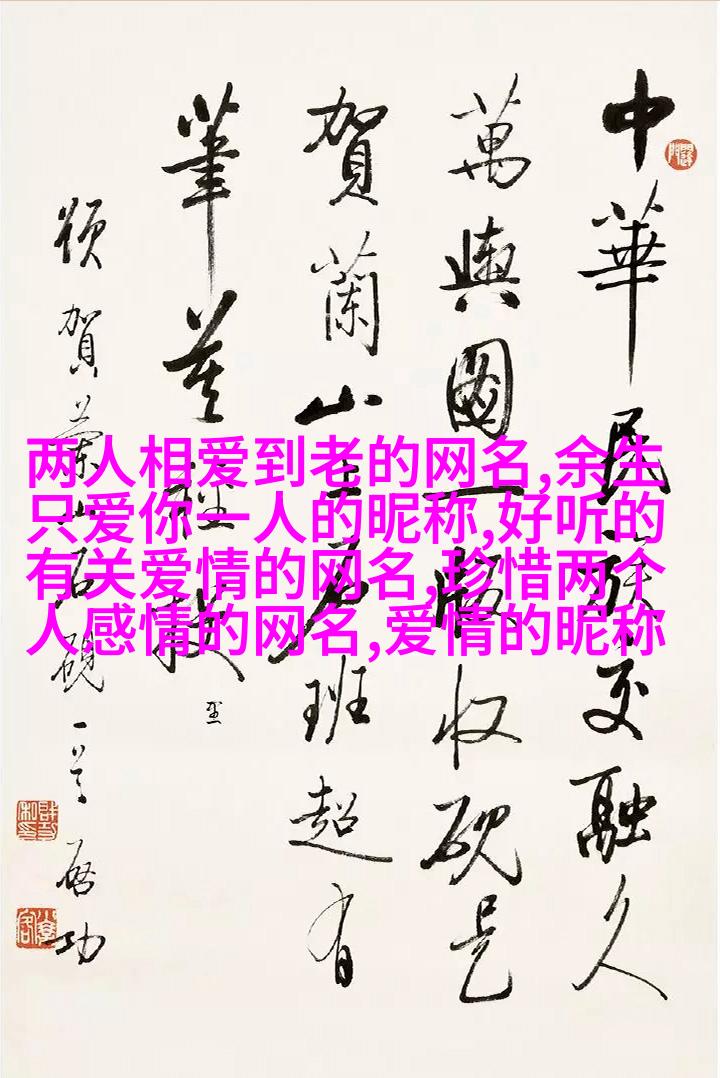 中華民族交融久
萬輿國一版收硯是
賀蘭山石班超有
筆莫輕投
頌賀蘭山石硯一首 启功
两人相爱到老的网名,余生
只爱你一人的昵称,好听的
有关爱情的网名,珍惜两个
人感情的网名,爱情的昵称